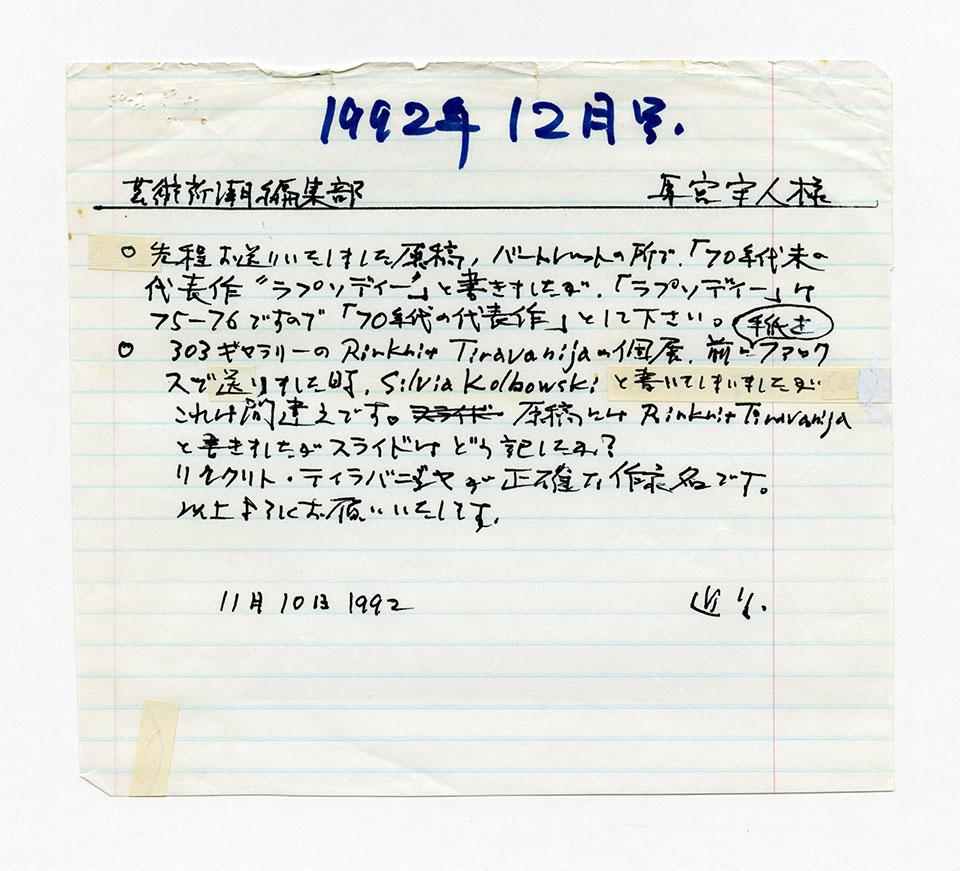 1992年 12月号.
芸術新潮編集部 宮宇人様
○ 先程お送りいたしました原稿, バートレットの所で.「70年代末の
代表作“ラプソディー”」と書きましたが.「ラプソディー」は
75-76ですので「70年代の代表作」として下さい。
手紙を
○ 303ギャラリーの Rirkrit Tiravanija の個展. 前にファック
スで送りました時. Silvia Kolbowski と書いてしまいましたが
これは間違えです。スライド 原稿には Rirkrit Tiravanija
と書きましたがスライドはどう記したか?
リクリト・ティラバニジャが正確な作家名です。
以上よろしくお願いいたします.
11月10日 1992 近.